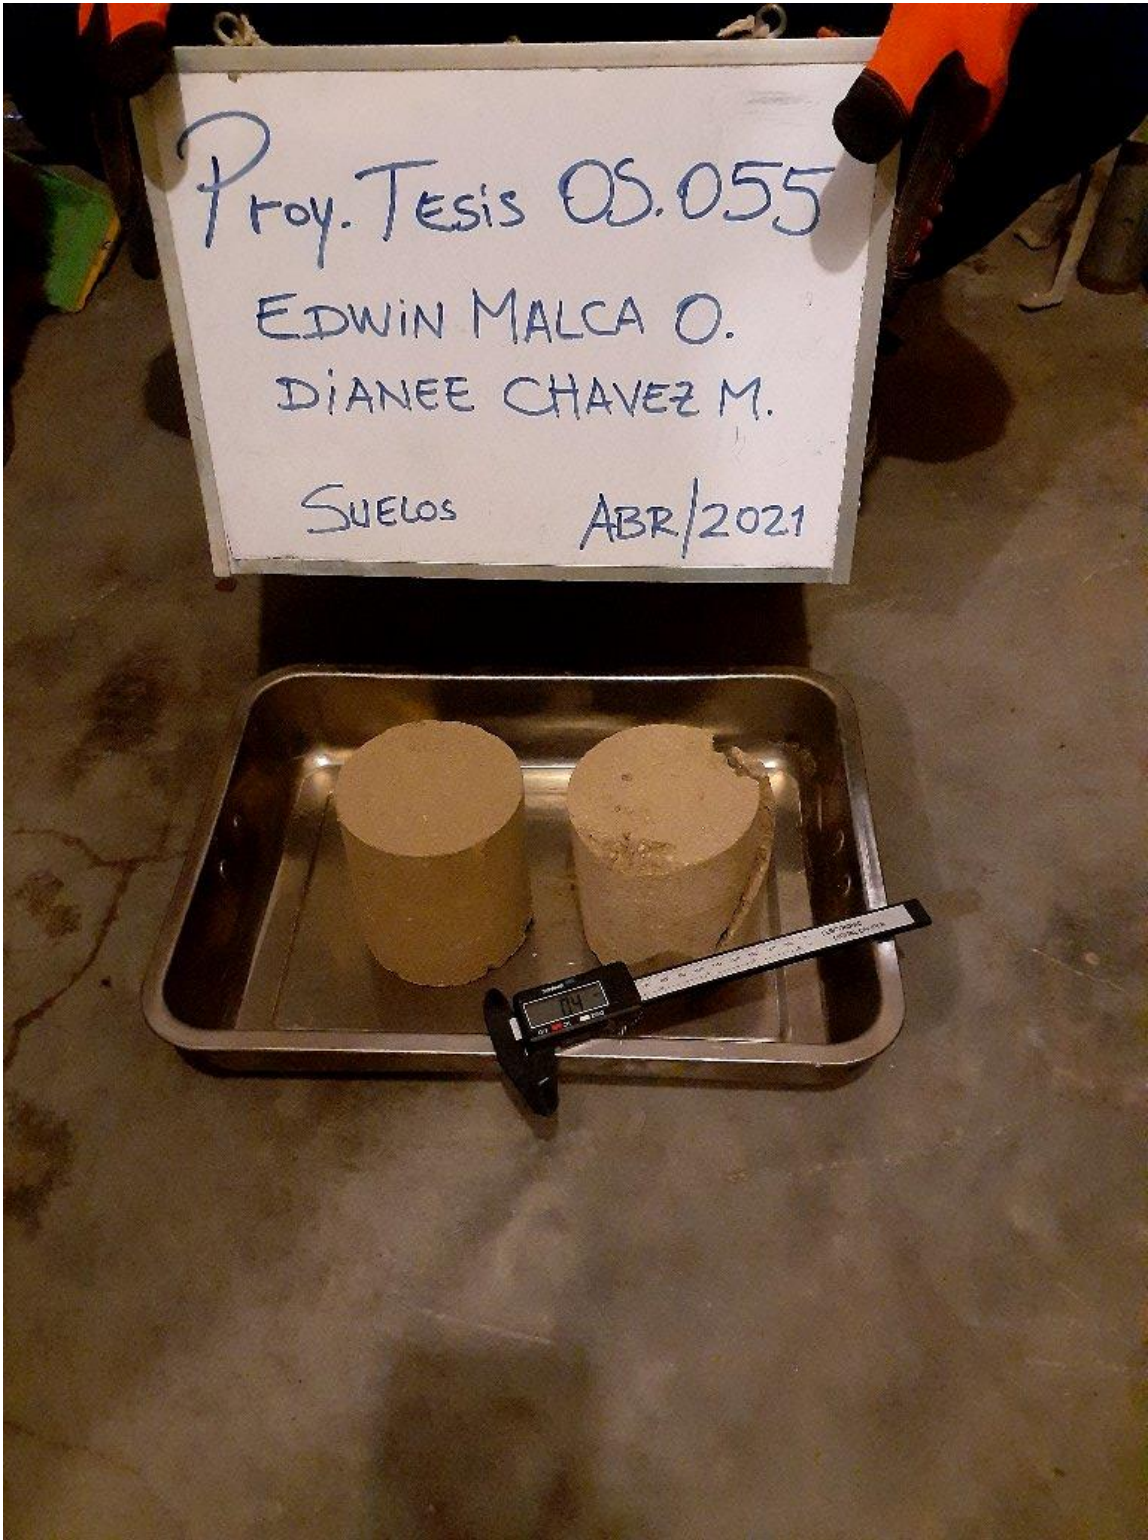 Proy. TESis OS.055
EDWiN MALCA O.
DiANEE CHAVEZ M.
SUELOS ABR/2021